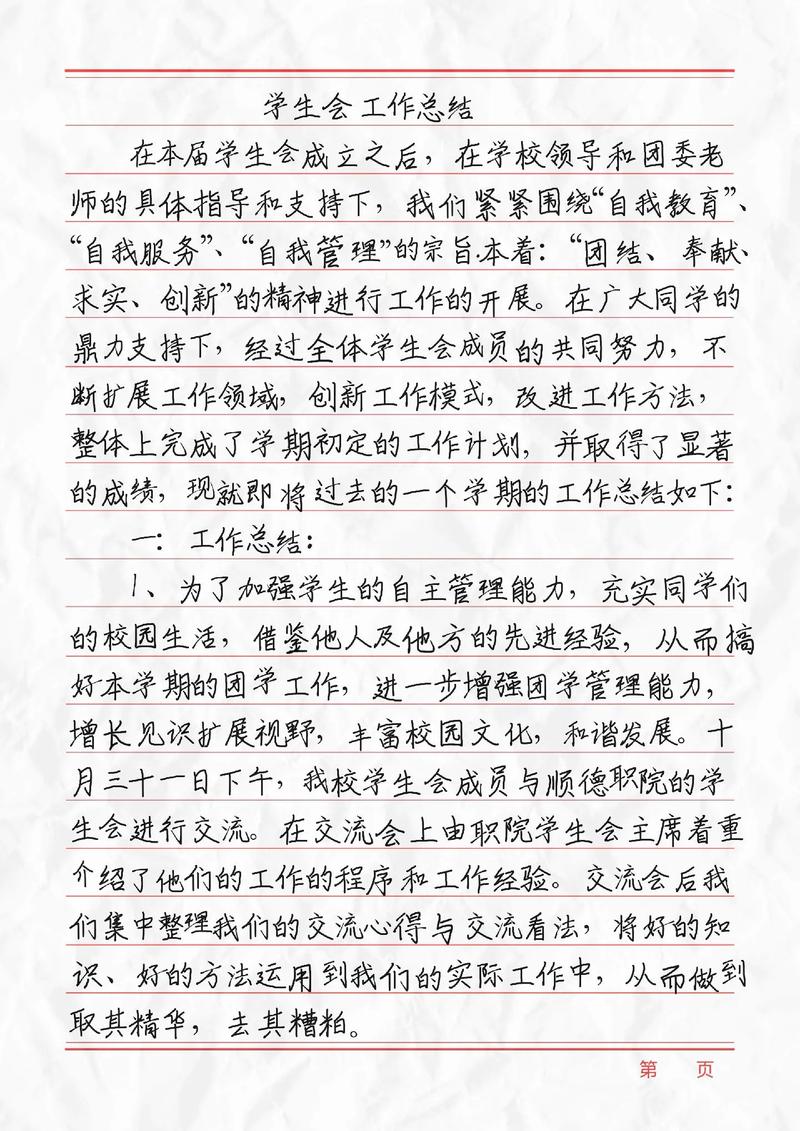 学生会工作总结
在本届学生会成立之后，在学校领导和团委老
师的具体指导和支持下，我们紧紧围绕“自我教育”、
“自我服务”、“自我管理”的宗旨.本着：“团结、奉献、
求实、创新”的精神进行工作的开展。在广大同学的
鼎力支持下，经过全体学生会成员的共同努力，不
断扩展工作领域，创新工作模式，改进工作方法，
整体上完成了学期初定的工作计划，并取得了显著
的成绩，现就即将过去的一个学期的工作总结如下：
一：工作总结：
1、为了加强学生的自主管理能力，充实同学们
的校园生活，借鉴他人及他方的先进经验，从而搞
好本学期的团学工作，进一步增强团学管理能力，
增长见识扩展视野，丰富校园文化，和谐发展。十
月三十一日下午，我校学生会成员与顺德职院的学
生会进行交流。在交流会上由职院学生会主席着重
介绍了他们的工作的程序和工作经验。交流会后我
们集中整理我们的交流心得与交流看法，将好的知
识、好的方法运用到我们的实际工作中，从而做到
取其精华，去其糟粕。
第 页